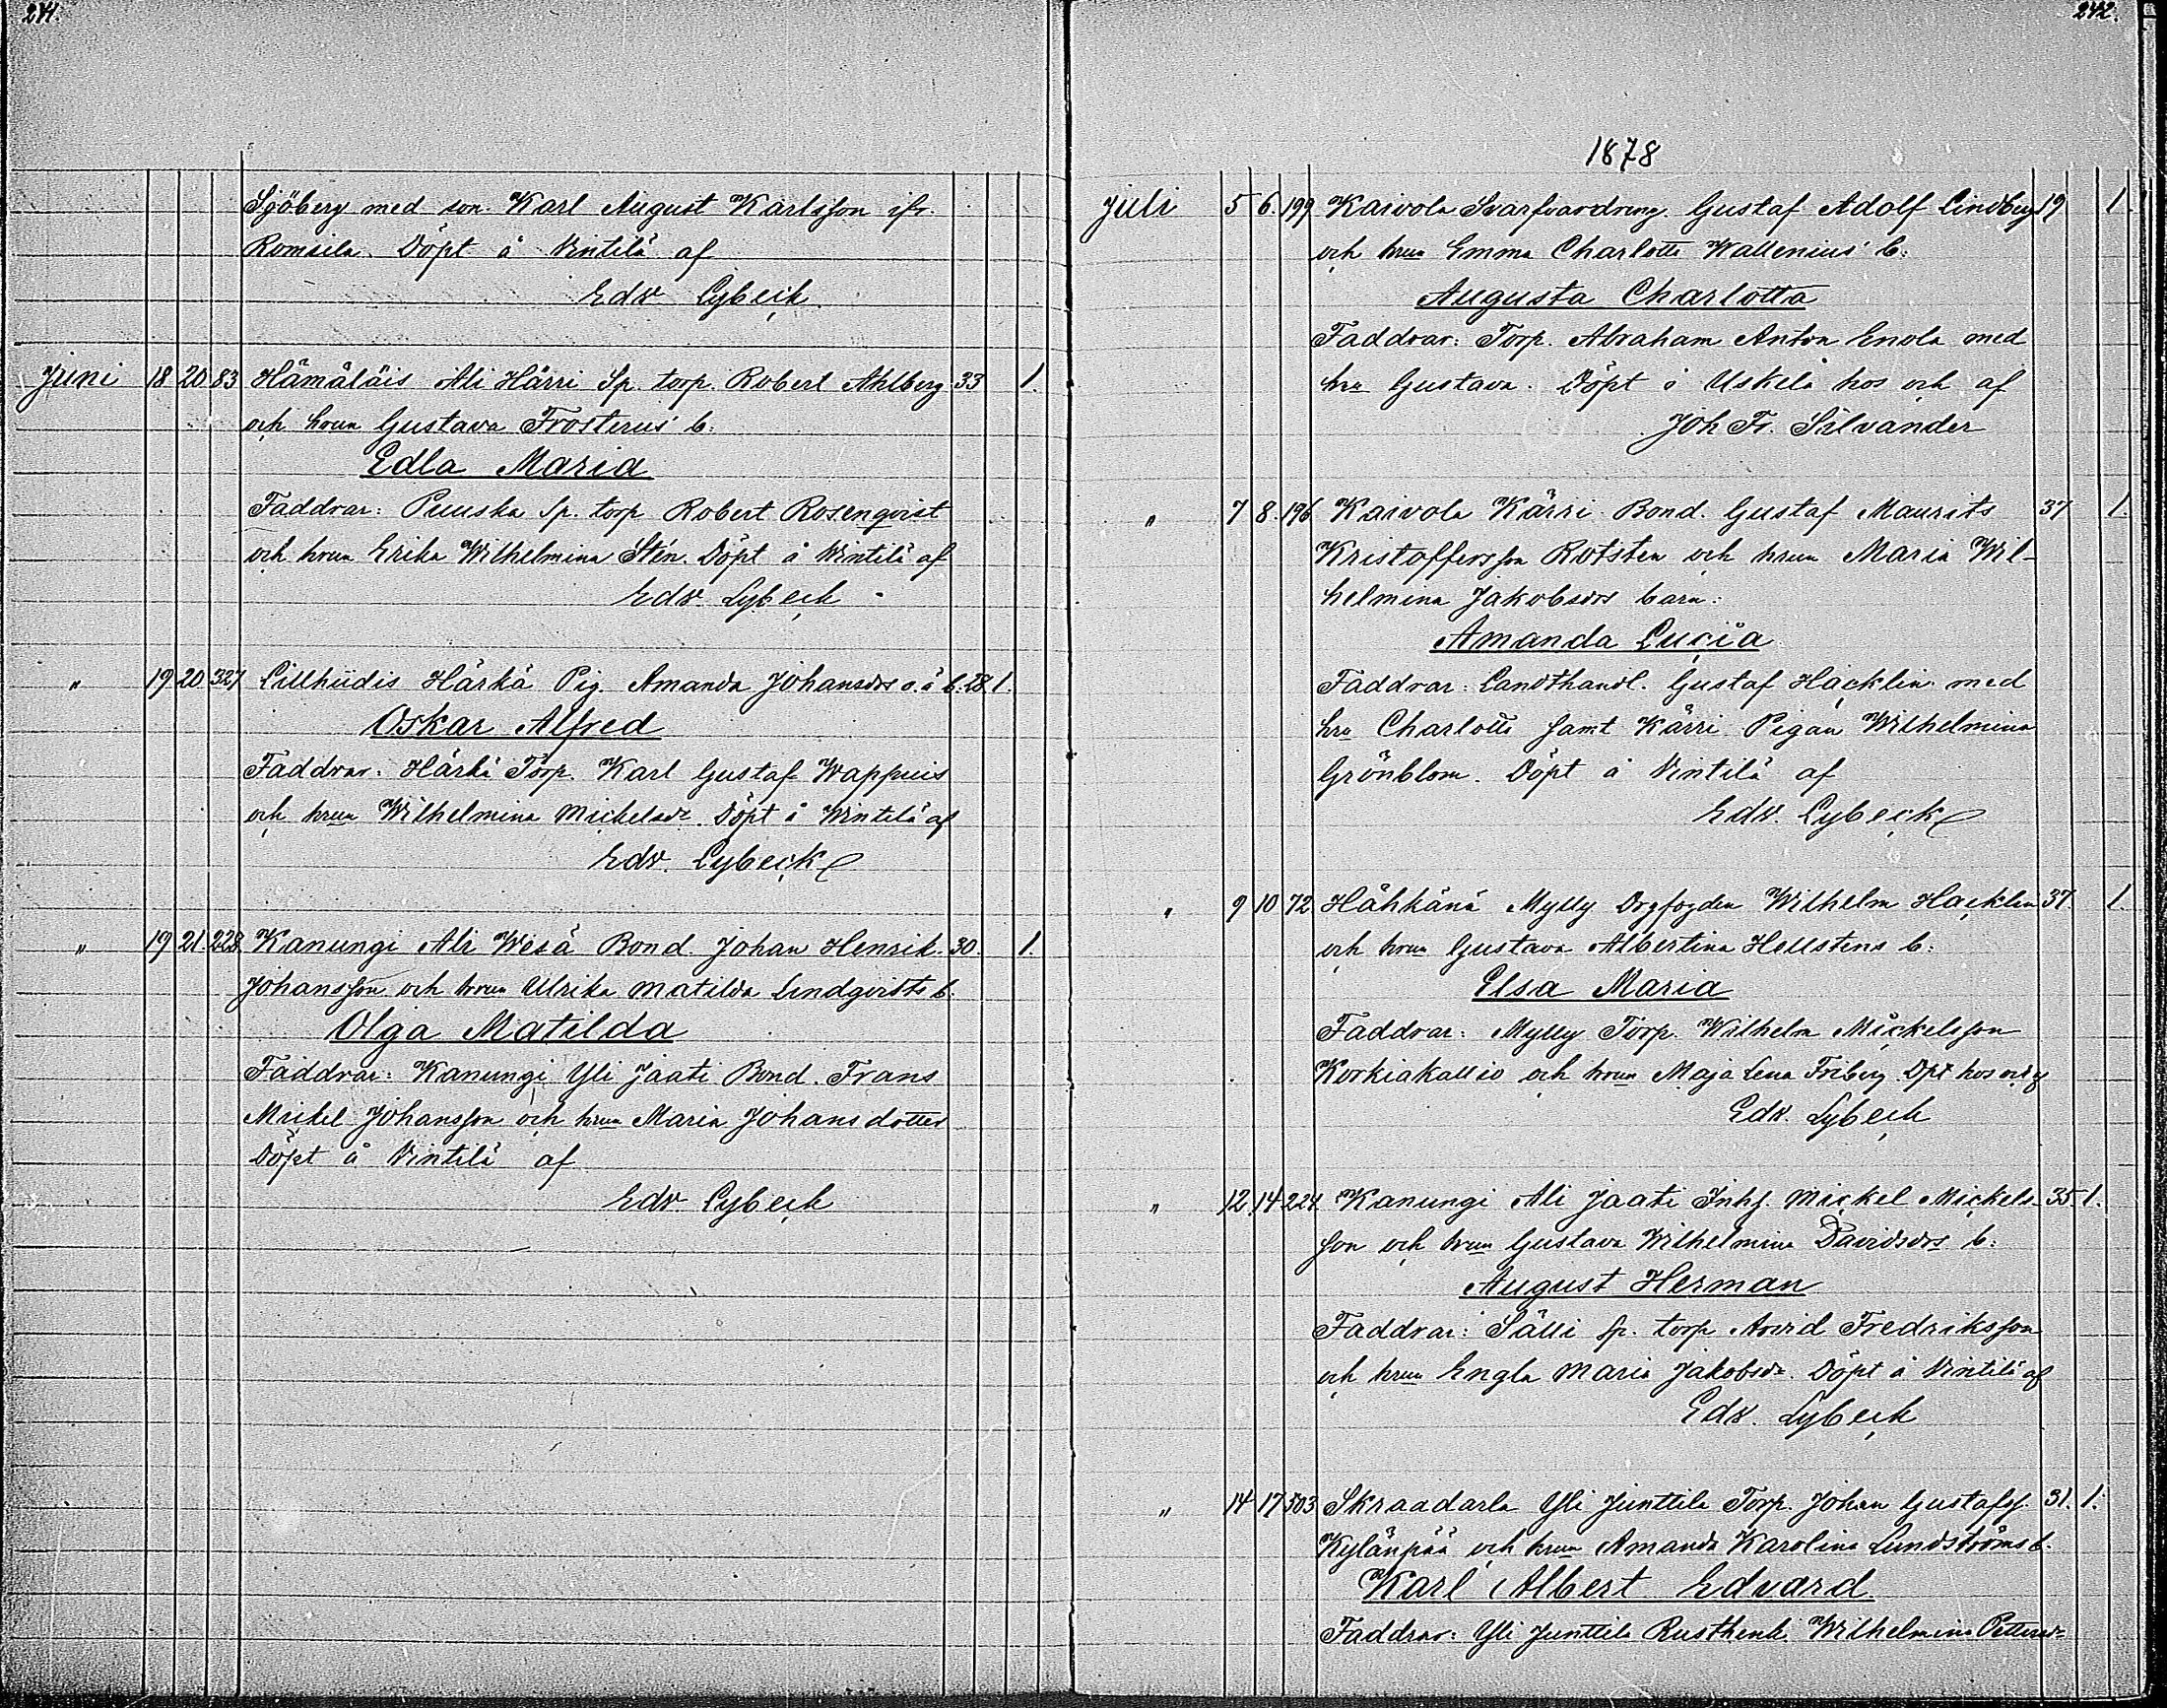 241.
Sjöberg med son Karl August Karlsson ifr.
Romsila. Döpt å Vintilä af
Edv. Lybeck.
Juni 18 20 83 Hämäläis Ali Härri Sp. torp. Robert Ahlberg 33 1.
och hrun Gustava Frosterus' b:
Edla Maria
Faddrar: Puuska Sp. torp Robert Rosenqvist
och hrun Erika Wilhelmina Stén. Döpt å Wintilä af
Edv. Lybeck
" 19 20 327 Lillhiidis Härkä Pig. Amanda Johansdrs o. ä b. 28 1.
Oskar Alfred
Faddrar: Härkä Torp. Karl Gustaf Wappuis
och hrun Wilhelmina Michelsdr. Döpt å Wintilä af
Edv. Lybeck
" 19 21. 228. Kanungi Ali Wesä Bond. Johan Henrik 30. 1.
Johansson och hrun Ulrika Matilda Lindqvists b.
Olga Matilda
Faddrar: Kanungi Yli Jaati Bond. Frans
Mickel Johansson och hrun Maria Johansdotter
Döpt å Vintilä af
Edv. Lybeck
242.
1878
Juli 5 6. 199 Kaivola Svarfvardreng. Gustaf Adolf Lindberg 19 1.
och hrun Emma Charlotta Wallenius' b:
Augusta Charlotta
Faddrar: Torp. Abraham Anton Enola med
hru Gustava. Döpt å Uskela hos och af
Joh Fr. Silvander
" 7 8. 196 Kaivola Kärri Bond. Gustaf Maurits 37 1.
Kristoffersson Rotsten och hrun Maria Wil-
helmina Jakobsdrs barn:
Amanda Lucia
Faddrar: Landthandl. Gustaf Hacklin med
hru Charlotta samt Kärri Pigan Wilhelmina
Grönblom. Döpt å Vintilä af
Edv. Lybeck
" 9 10 72. Hähkänä Mylly Drgfogden Wilhelm Hacklin 37. 1.
och hrun Gustava Albertina Hellstens b:
Elsa Maria
Faddrar: Mylly Torp. Wilhelm Mickelsson
Korkiakallio och hrun Maja Lena Friberg. Dpt hos och af
Edv. Lybeck
" 12 14 224 Kanungi Ali Jaati Inhy. Mickel Mickels- 35. 1.
son och hrun Gustava Wilhelmina Davidsdrs b:
August Herman
Faddrar: Sälli Sp. torp Arvid Fredriksson
och hrun Engla Maria Jakobsdr. Döpt å Vintilä af
Edv. Lybeck
" 14 17 303 Skraadarla Yli Junttila Torp. Johan Gustafss. 31. 1.
Kylänpää och hrun Amanda Karolina Lundströms b.
Karl Albert Edvard
Faddrar: Yli Junttila Rusthenk. Wilhelmina Pettersdr